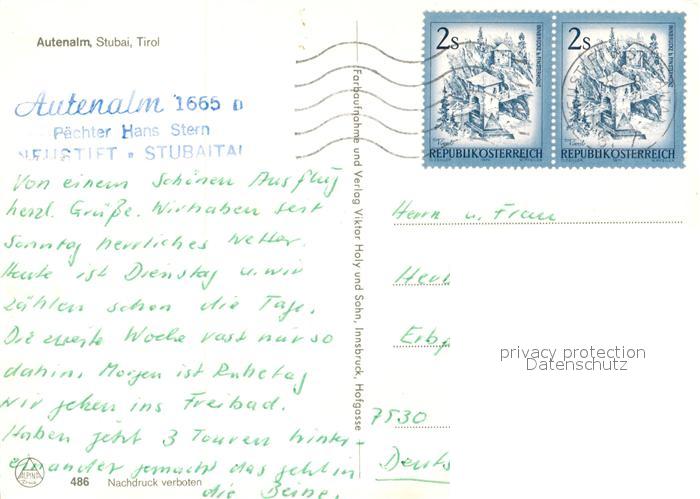 Autenalm, Stubai, Tirol
Autenalm 1665 m
Pächter Hans Stern
NEUSTIFT • STUBAITAL
Von einem schönen Ausflug
herzl. Grüße. Wir haben seit
Sonntag herrliches Wetter.
Heute ist Dienstag u. wir
zählen schon die Tage.
Die zweite Woche rast nur so
dahin. Morgen ist Ruhetag
wir gehen ins Freibad.
Haben jetzt 3 Touren hinter-
einander gemacht das geht in
die Beine.
486 Nachdruck verboten
ALPINA
Druck
Farbaufnahme und Verlag Viktor Holy und Sohn, Innsbruck, Hofgasse
2s
REPUBLIK ÖSTERREICH
2s
REPUBLIK ÖSTERREICH
Herrn u. Frau
Erb
7530
Deuts
privacy protection
Datenschutz